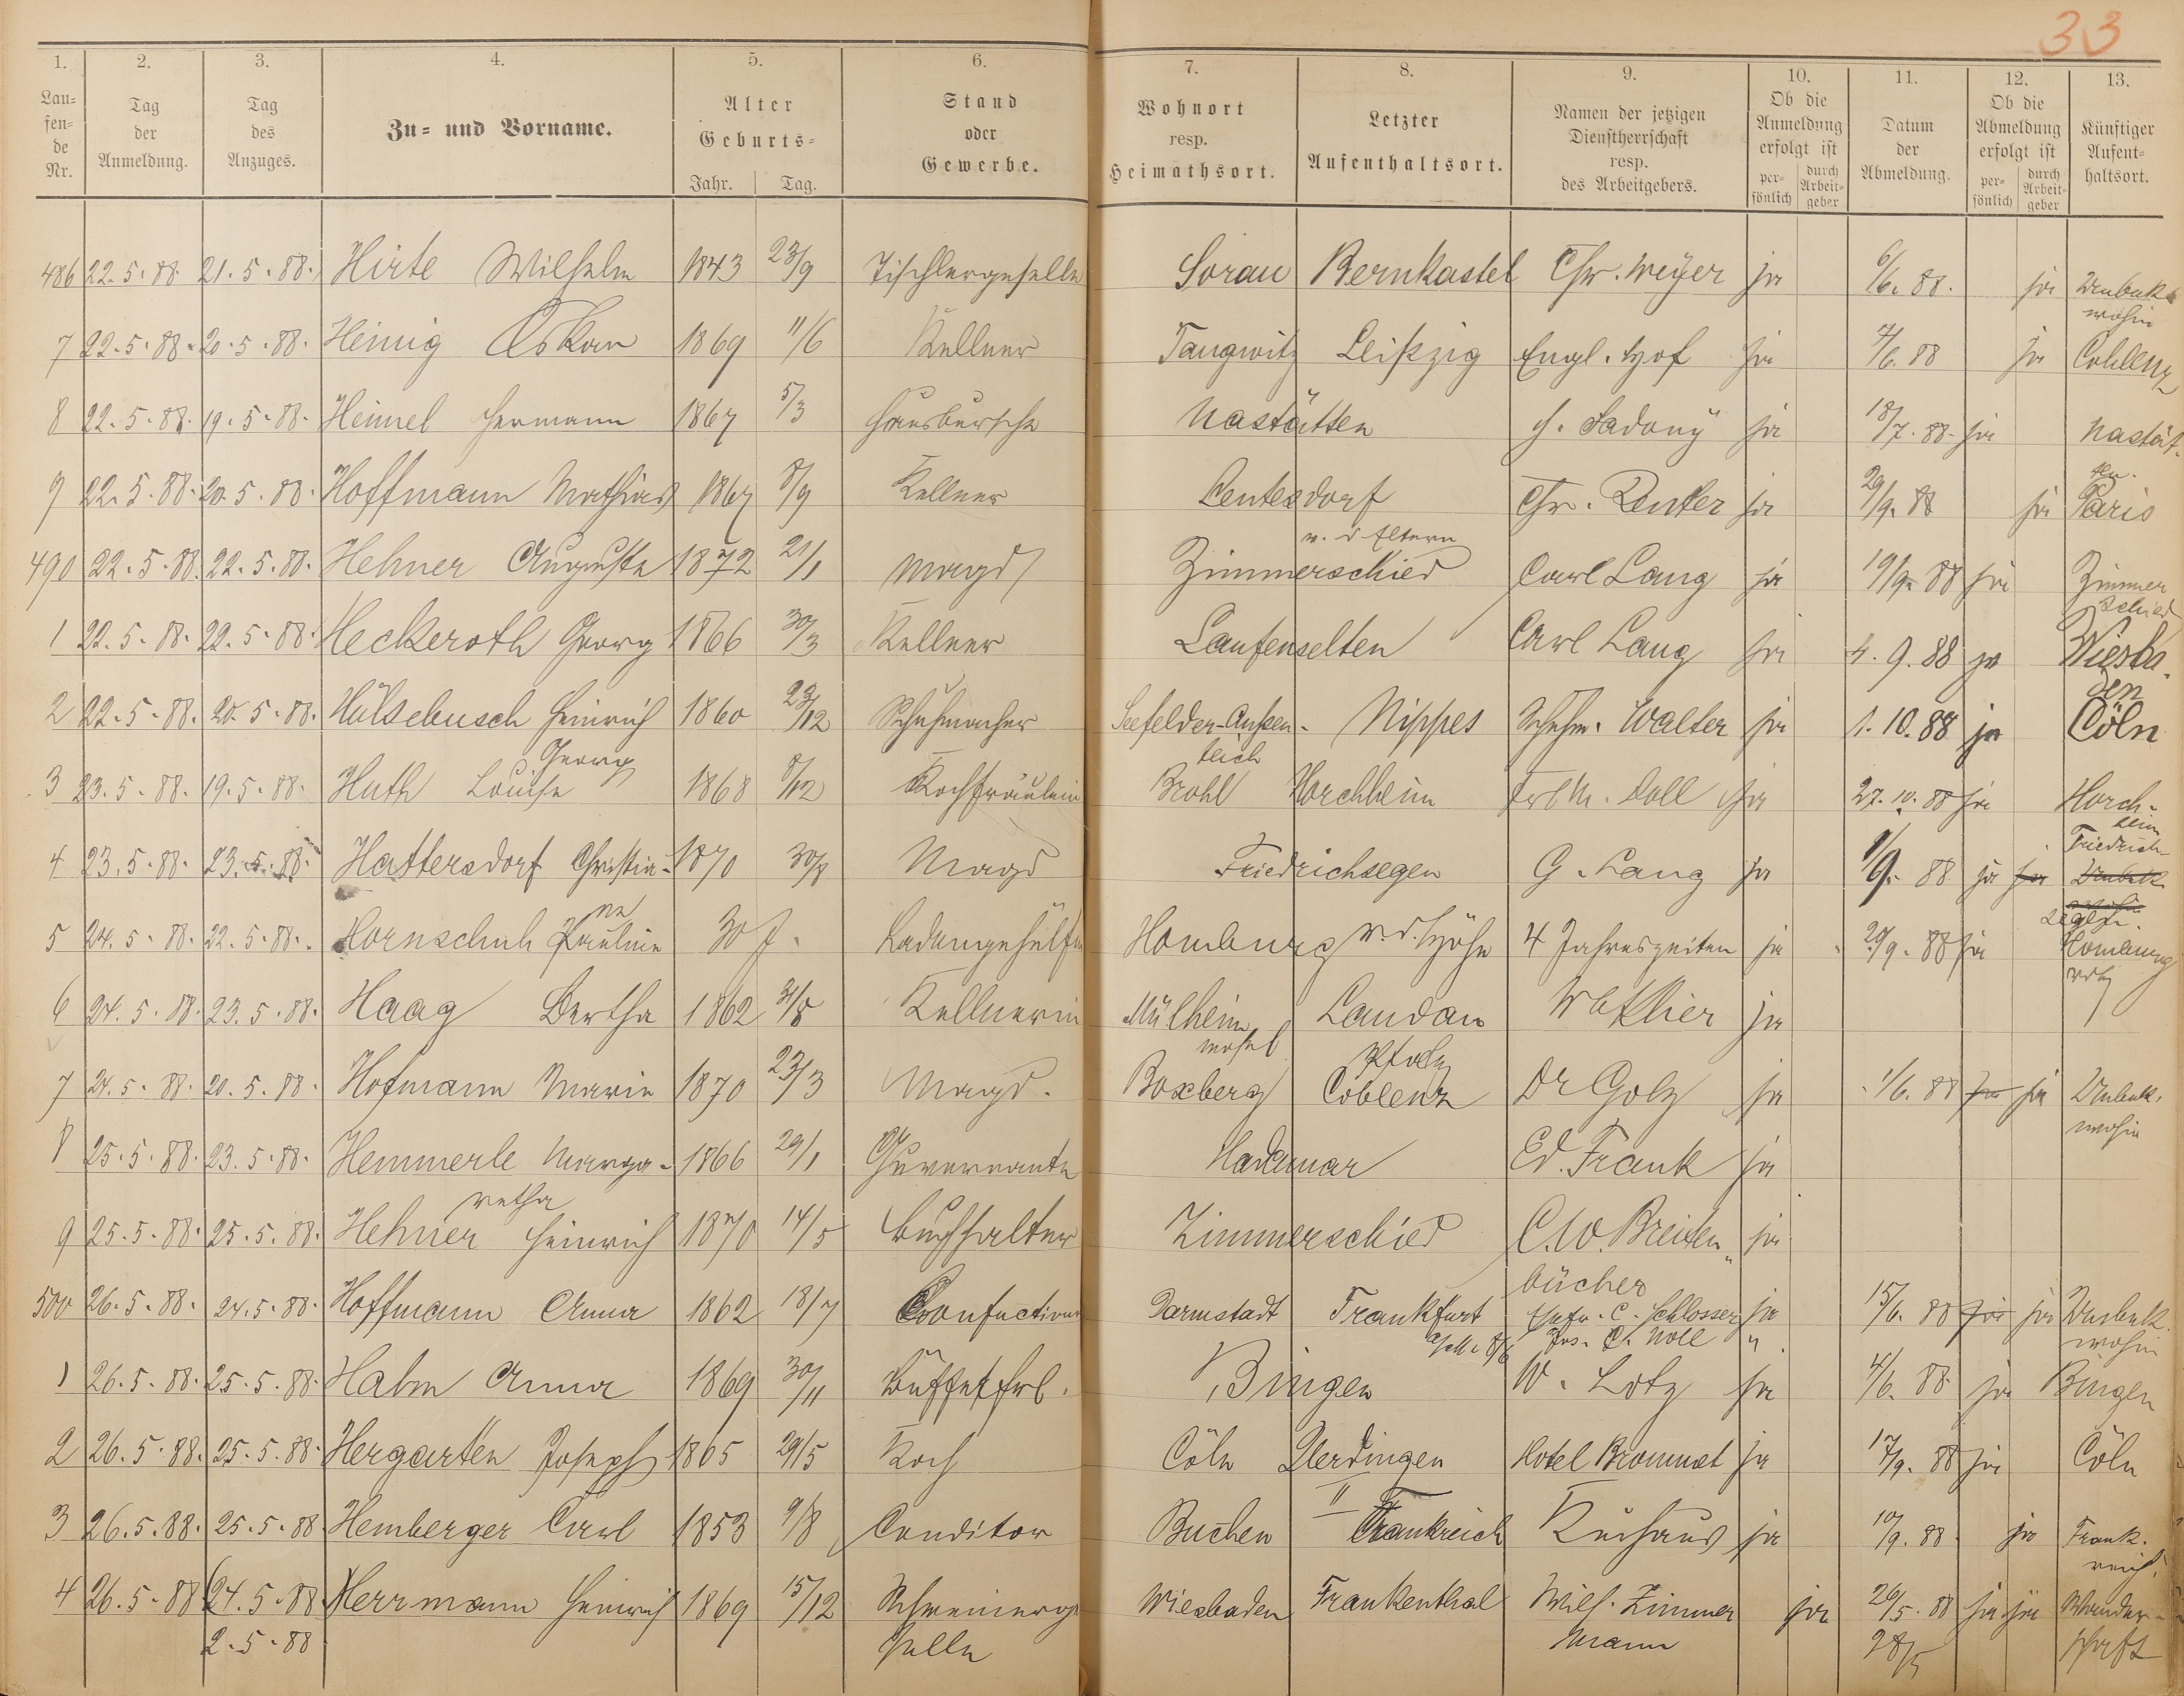 33
1. 2. 3. 4. 5. 6. 7. 8. 9. 10. 11. 12. 13.
Lau-
fen-
de
Nr.
Tag
der
Anmeldung.
Tag
des
Anzuges.
Zu- und Vorname.
Alter
Geburts-
Jahr. Tag.
Stand
oder
Gewerbe.
Wohnort
resp.
Heimathsort.
Letzter
Aufenthaltsort.
Namen der jetzigen
Dienstherrschaft
resp.
des Arbeitgebers.
Ob die
Anmeldung
erfolgt ist
per-
sönlich
durch
Arbeit-
geber
Datum
der
Abmeldung.
Ob die
Abmeldung
erfolgt ist
per-
sönlich
durch
Arbeit-
geber
Künftiger
Aufent-
haltsort.
486 22.5.88. 21.5.88. Hirte Wilhelm 1843 23/9 Tischlergeselle Sorau Bernkastel Chr. Meyer ja 6/6. 88. ja Unbek.
wohin
7 22.5.88. 20.5.88. Heinig Oskar 1869 11/6 Kellner Tangwitz Leipzig Engl. Hof ja 7/6. 88 ja Coblenz
8 22.5.88. 19.5.88. Heimel Hermann 1867 5/3 Hausbursche Nastätten J. Sadony ja 18/7. 88. ja Nastät-
ten.
9 22.5.88. 20.5.88. Hoffmann Mathias 1867 8/9 Kellner Leutesdorf Chr. Reuter ja 29/9. 88 ja Paris
v. d. Eltern
490 22.5.88. 22.5.88. Hehner Auguste 1872 21/1 Magd Zimmerschied Carl Lang ja 19/9. 88 ja Zimmer
schied
1 22.5.88. 22.5.88. Heckeroth Georg 1866 30/3 Kellner Laufenselten Carl Lang ja 4. 9. 88 ja Wiesba-
den
2 22.5.88. 20.5.88. Hülsebusch Heinrich 1860 23/12 Schuhmacher Seefelder-Aussen- Nippes Schuhm. Walter ja 1. 10. 88 ja Cöln
Georg
teich
3 23.5.88. 19.5.88. Huth Louise 1868 8/12 Kochfräulein Brohl Horchheim Frl. M. Doll ja 27. 10. 88 ja Horch-
heim
4 23.5.88. 23.5.88. Hattersdorf Christia- 1870 30/8 Magd Friedrichsegen G. Lang ja 1/9. 88 ja ja Friedrich-
Unbek.
wohin
segen.
ne
5 24.5.88. 22.5.88. Hornschuh Pauline 30 J. Ladengehülfin Homburg v.d. Höhe 4 Jahreszeiten ja 20/9. 88 ja Homburg
vdh
6 24.5.88. 23.5.88. Haag Bertha 1862 31/8 Kellnerin Mülheim Landau ja
Mosel Pfalz
7 24.5.88. 20.5.88. Hofmann Marie 1870 23/3 Magd. Boxberg Coblenz Dr Golz ja 1/6. 88 ja ja Unbek.
wohin
8 25.5.88. 23.5.88. Hemmerle Marga- 1866 29/1 Guvernante Hadamar Ed. Frank ja
retha
9 25.5.88. 25.5.88. Hehner Heinrich 1870 14/5 Buchhalter Zimmerschied C.W. Breiden„ ja
bücher
500 26.5.88. 24.5.88. Hoffmann Anna 1862 18/7 Darmstadt Frankfurt C. Schlosser ja 15/6. 88 ja ja Unbek.
wohin
Jos. Ch. Noll "
1 26.5.88. 25.5.88. Halm Anna 1869 30/11 Büffetfrl. Bingen W. Lotz ja 4/6. 88 ja Bingen
2 26.5.88. 25.5.88. Hergarten Joseph 1865 29/5 Koch Cöln Uerdingen Hotel Brommet ja 17/9. 88 ja Cöln
3 26.5.88. 25.5.88 Hemberger Carl 1853 9/8 Conditor Buchen Frankreich Kurhaus ja 10/9. 88 ja Frank-
reich.
4 26.5.88 24.5.88. Herrmann Heinrich 1869 15/12 Schreinerge Wiesbaden Frankenthal Wilh. Zimmer ja 26/5. 88 ja ja Wander-
2.5.88 selle mann 28/5 schaft